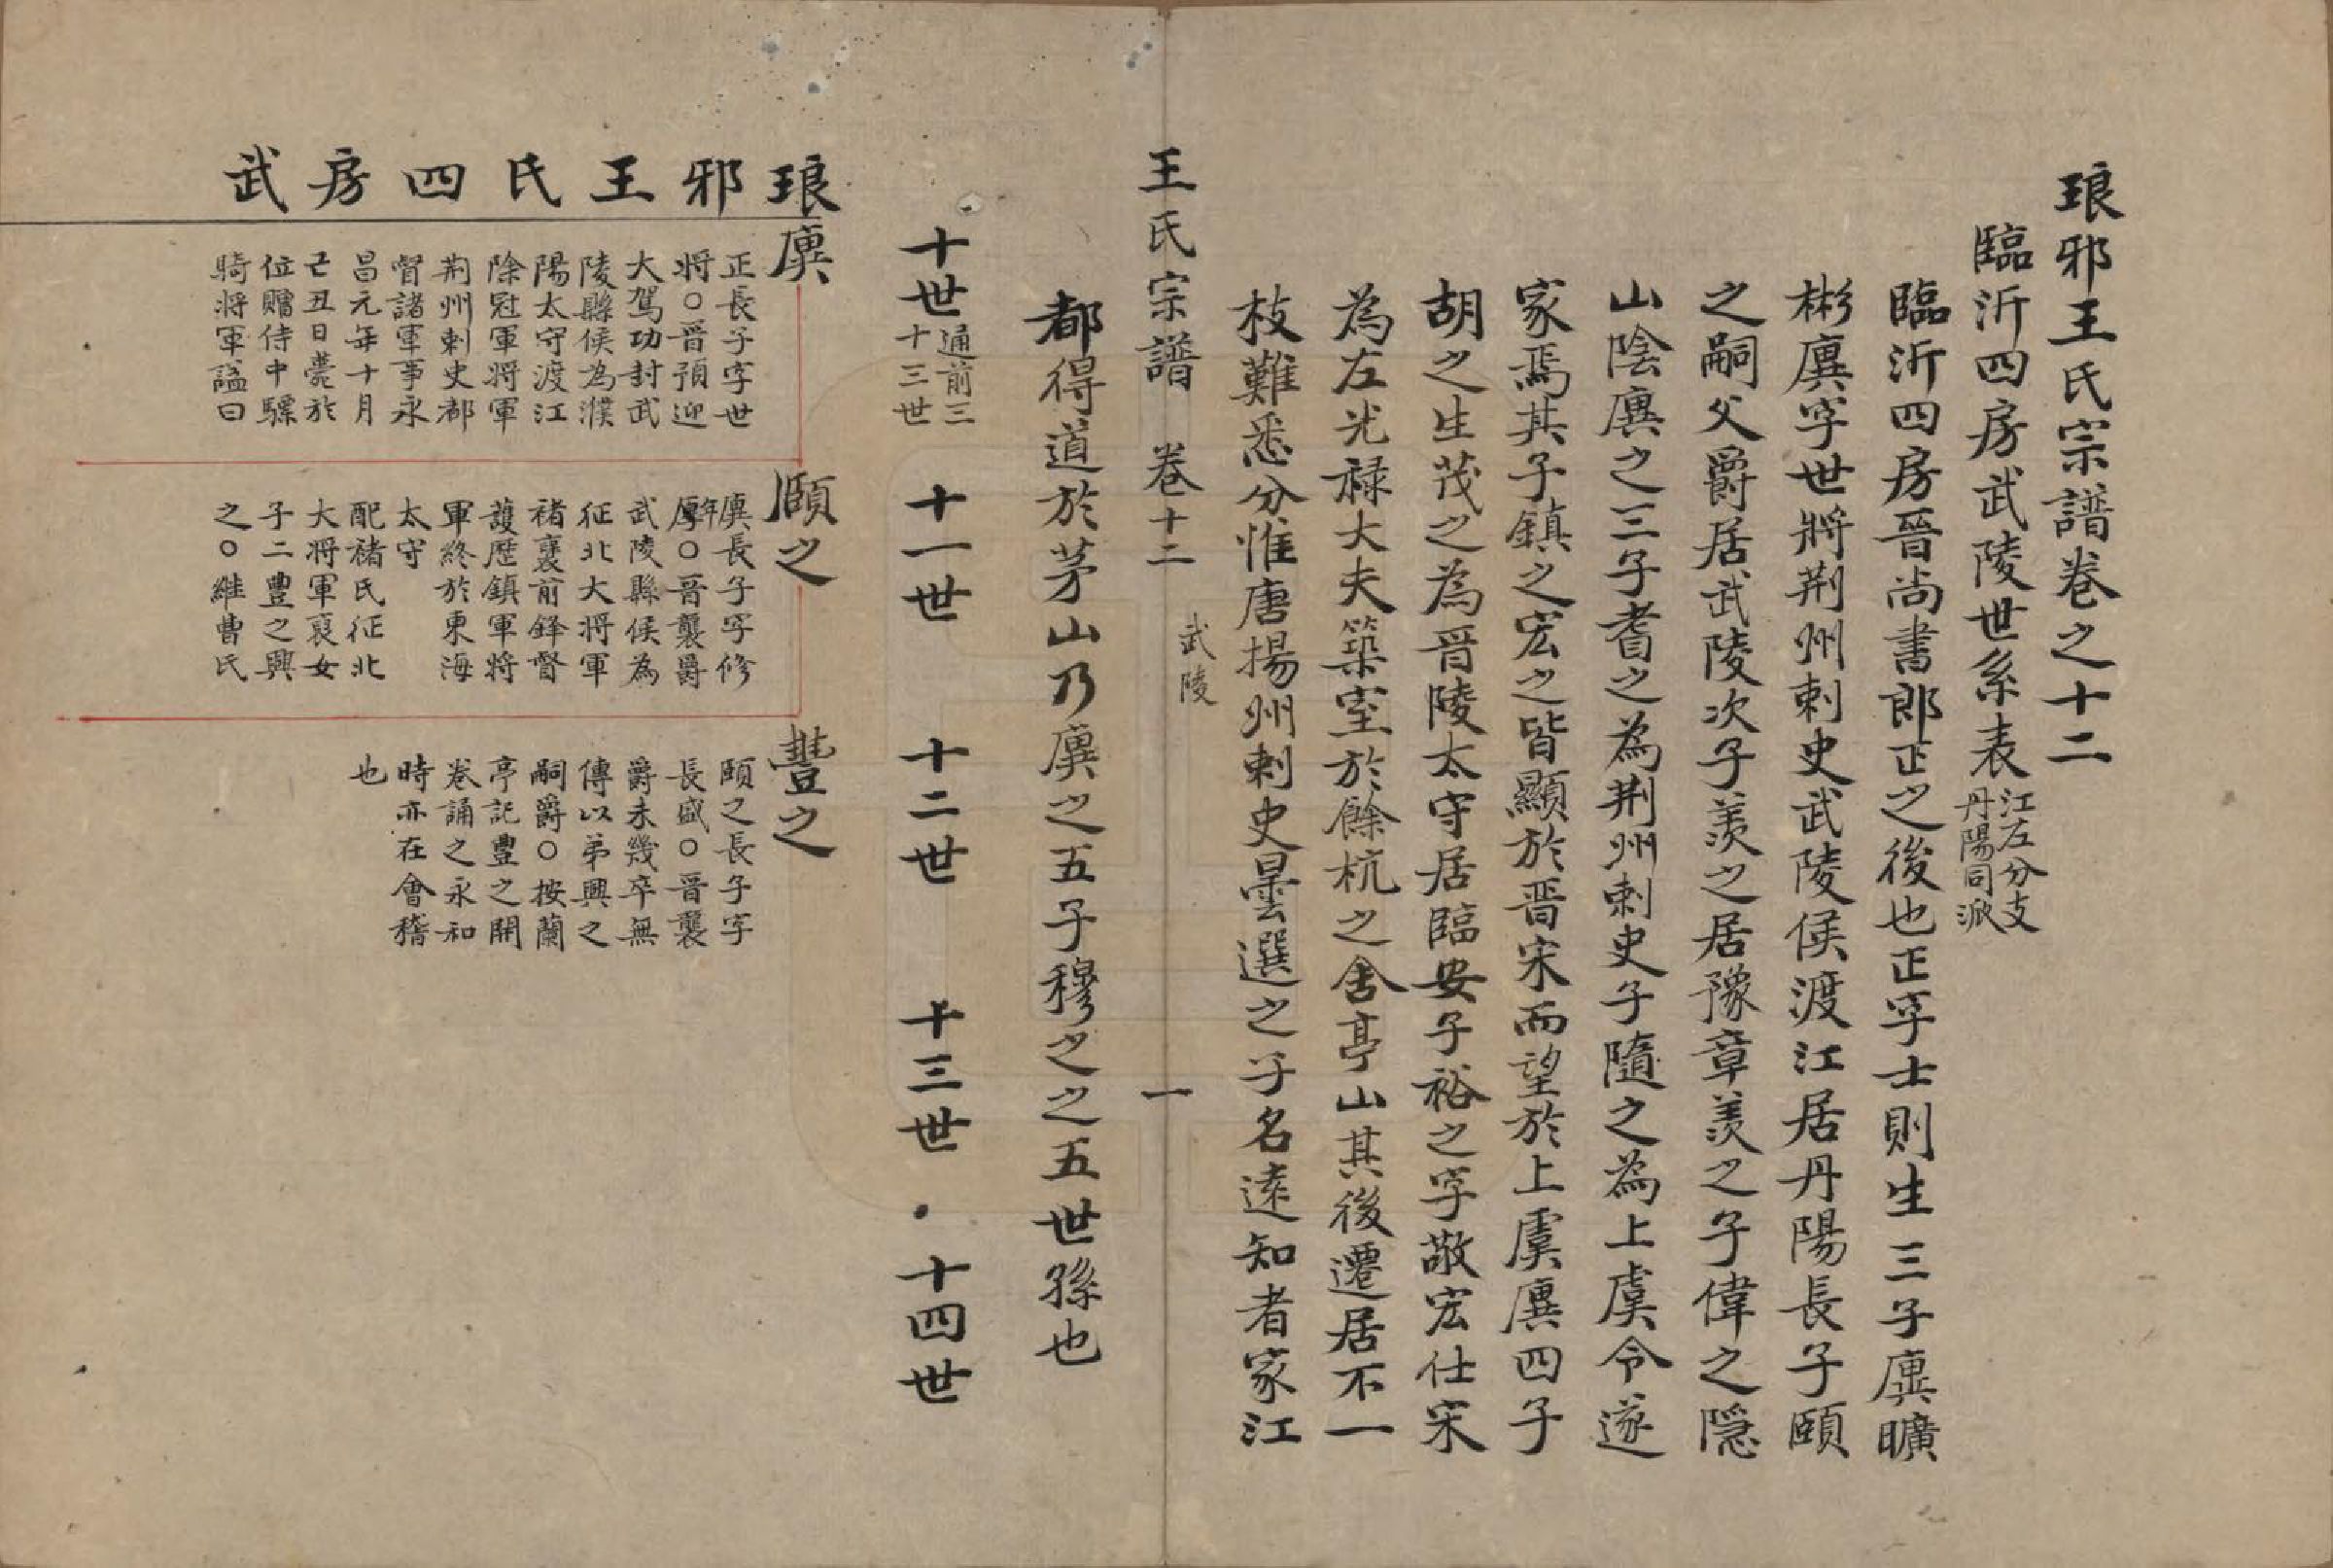 琅邪王氏宗譜卷之十二
臨沂四房武陵世系表
江左分支
丹陽同派
臨沂四房晉尚書郎正之後也正字士則生三子廙曠
彬廙字世將荆州刺史武陵侯渡江居丹陽長子頤
之嗣父爵居武陵次子羡之居豫章羡之子偉之隱
山陰廙之三子耆之為荆州刺史子隨之為上虞令遂
家焉其子鎮之宏之皆顯於晉宋而望於上虞廙四子
胡之生茂之為晉陵太守居臨安子裕之字敬宏仕宋
為左光禄大夫築室於餘杭之舍亭山其後遷居不一
枝難悉分惟唐揚州刺史曇選之子名遠知者家江
王氏宗譜 卷十二 武陵 一
都得道於茅山乃廙之五子穆之之五世孫也
十世 通前三 十三世 十一世 十二世 十三世 十四世
琅邪王氏四房武
廙
正長子字世
將○晉預迎
大駕功封武
陵縣侯為濮
陽太守渡江
除冠軍將軍
荆州刺史都
督諸軍事永
昌元年十月
己丑日薨於
位贈侍中驃
騎將軍謚曰
頤之
廙長子字修
年
厚○晉襲爵
武陵縣侯為
征北大將軍
褚裒前鋒督
護歷鎮軍將
軍終於東海
太守
配褚氏征北
大將軍裒女
子二豐之興
之○繼曹氏
豐之
頤之長子字
長盛○晉襲
爵未幾卒無
傳以弟興之
嗣爵○按蘭
亭記豐之開
卷誦之永和
時亦在會稽
也